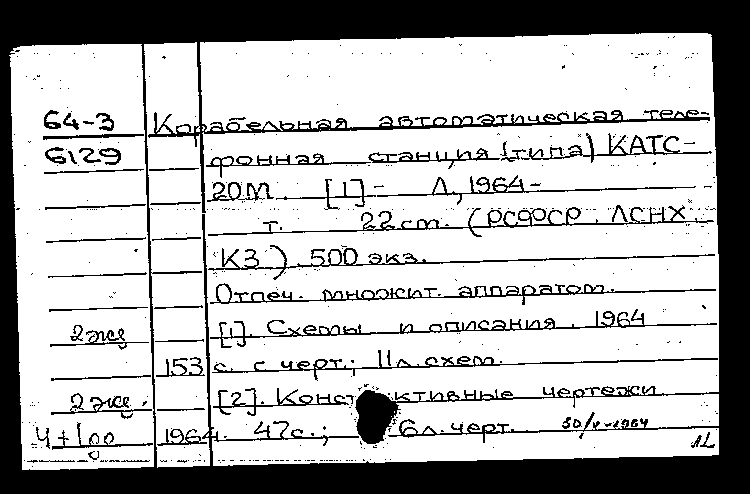 64-3 Корабельная автоматическая теле-
6129 фонная станция (типа) КАТС-
20М. [1]- Л., 1964-
т. 22 cm. (РСФСР. ЛСНХ.
КЗ). 500 экз.
Отпеч. множит. аппаратом.
2 экз [1]. Схемы и описания. 1964
153 с. с черт.; 11 л. схем.
2 экз. [2]. Конст ктивные чертежи
1964. 47 с.; 6 л. черт.